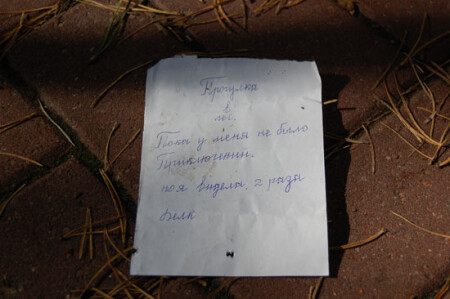 Прогулка
в
лес.
Пока у меня не было
Приключений.
но я видела 2 раза
Белк